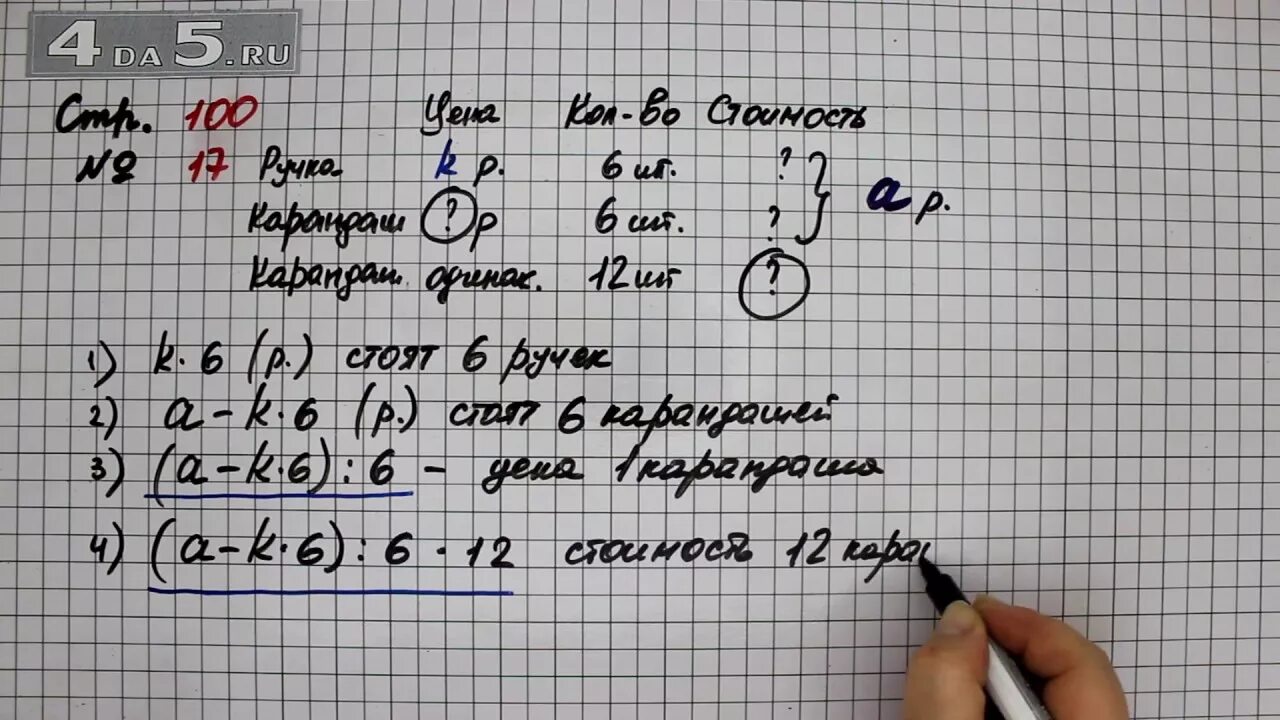 4DA5.RU
Стр. 100 Цена Кол-во Стоимость
№ 17 Ручка k р. 6 шт. ? } a р.
Карандаш ? р 6 шт. ?
Карандаш одинак. 12 шт ?
1) k·6 (р.) стоят 6 ручек
2) a-k·6 (р.) стоят 6 карандашей
3) (a-k·6):6 - цена 1 карандаша
4) (a-k·6):6·12 стоимость 12 кара